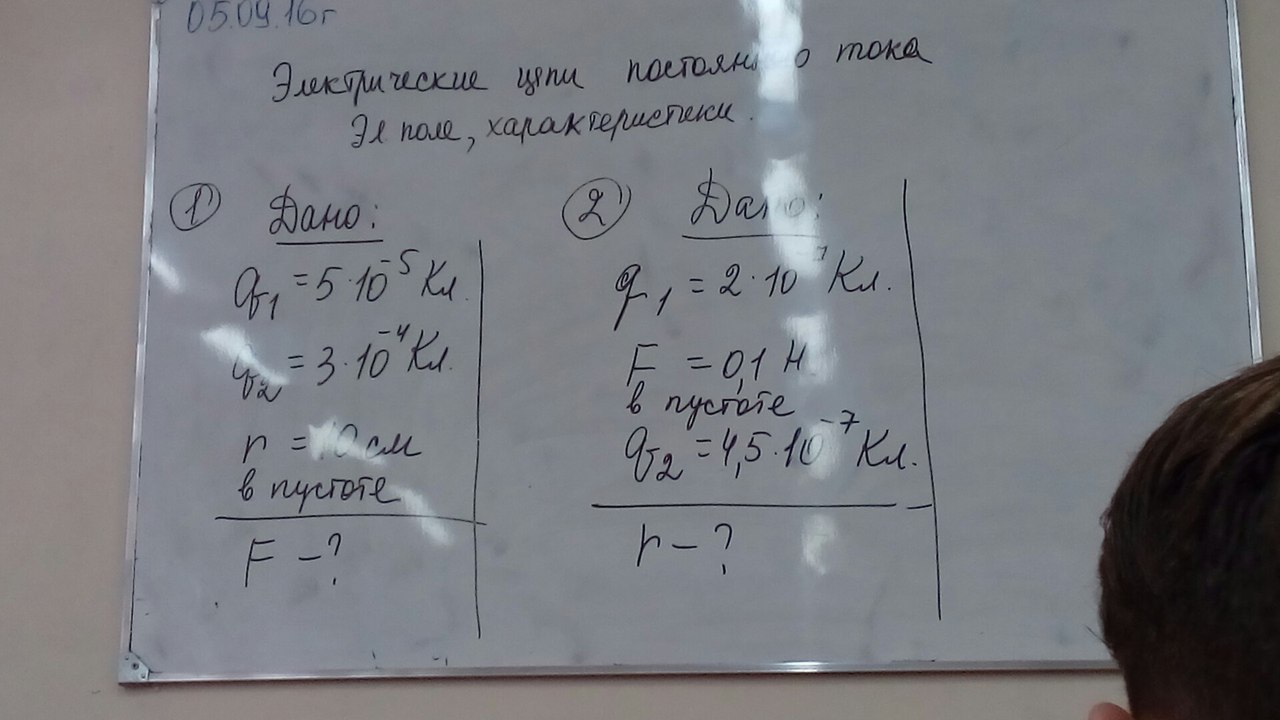 05.09.16г
Электрические цепи постоянного тока
Эл поле, характеристики.
1) Дано:
q₁ = 5·10⁻⁵ Кл.
q₂ = 3·10⁻⁴ Кл.
r = 10 см
в пустоте
F – ?
2) Дано:
q₁ = 2·10⁻⁷ Кл.
F = 0,1 Н
в пустоте
q₂ = 4,5·10⁻⁷ Кл.
r – ?